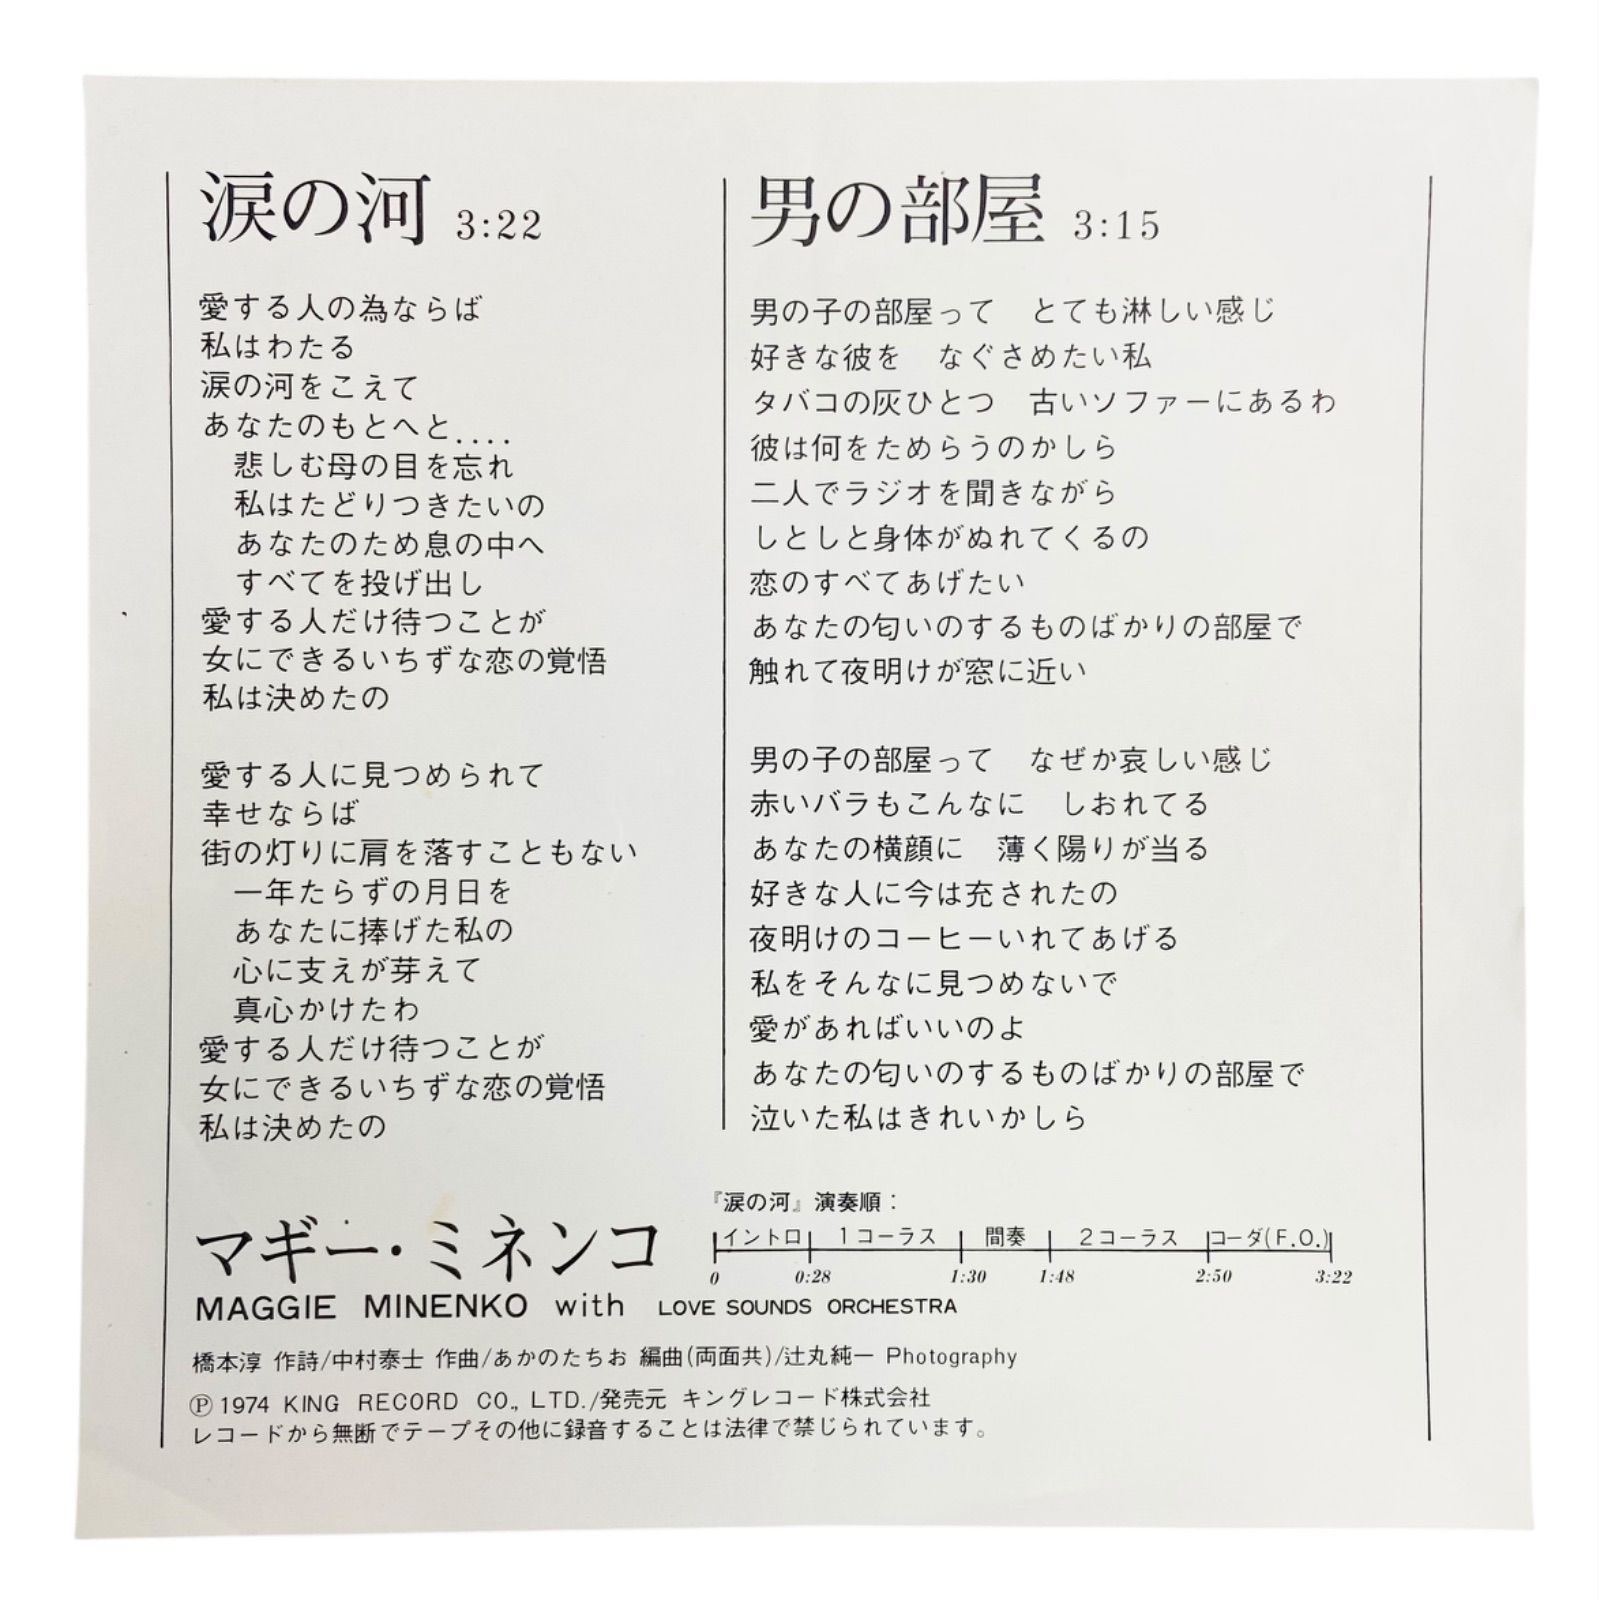 涙の河 3:22
愛する人の為ならば
私はわたる
涙の河をこえて
あなたのもとへと....
悲しむ母の目を忘れ
私はたどりつきたいの
あなたのため息の中へ
すべてを投げ出し
愛する人だけ待つことが
女にできるいちずな恋の覚悟
私は決めたの
愛する人に見つめられて
幸せならば
街の灯りに肩を落すこともない
一年たらずの月日を
あなたに捧げた私の
心に支えが芽えて
真心かけたわ
愛する人だけ待つことが
女にできるいちずな恋の覚悟
私は決めたの
男の部屋 3:15
男の子の部屋って　とても淋しい感じ
好きな彼を　なぐさめたい私
タバコの灰ひとつ　古いソファーにあるわ
彼は何をためらうのかしら
二人でラジオを聞きながら
しとしと身体がぬれてくるの
恋のすべてあげたい
あなたの匂いのするものばかりの部屋で
触れて夜明けが窓に近い
男の子の部屋って　なぜか哀しい感じ
赤いバラもこんなに　しおれてる
あなたの横顔に　薄く陽りが当る
好きな人に今は充されたの
夜明けのコーヒーいれてあげる
私をそんなに見つめないで
愛があればいいのよ
あなたの匂いのするものばかりの部屋で
泣いた私はきれいかしら
『涙の河』演奏順：
イントロ 1コーラス 間奏 2コーラス コーダ(F.O.)
0 0:28 1:30 1:48 2:50 3:22
マギー・ミネンコ
MAGGIE MINENKO with LOVE SOUNDS ORCHESTRA
橋本淳 作詩/中村泰士 作曲/あかのたちお 編曲(両面共)/辻丸純一 Photography
Ⓟ1974 KING RECORD CO., LTD./発売元 キングレコード株式会社
レコードから無断でテープその他に録音することは法律で禁じられています。